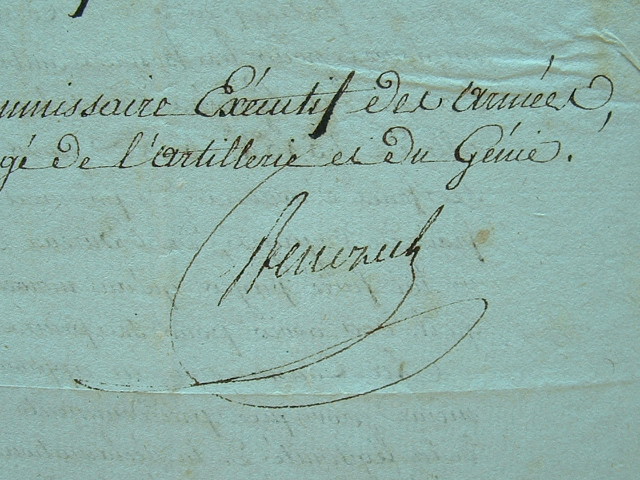 mmissaire Exécutif des armées,
gé de l'artillerie et du Génie.